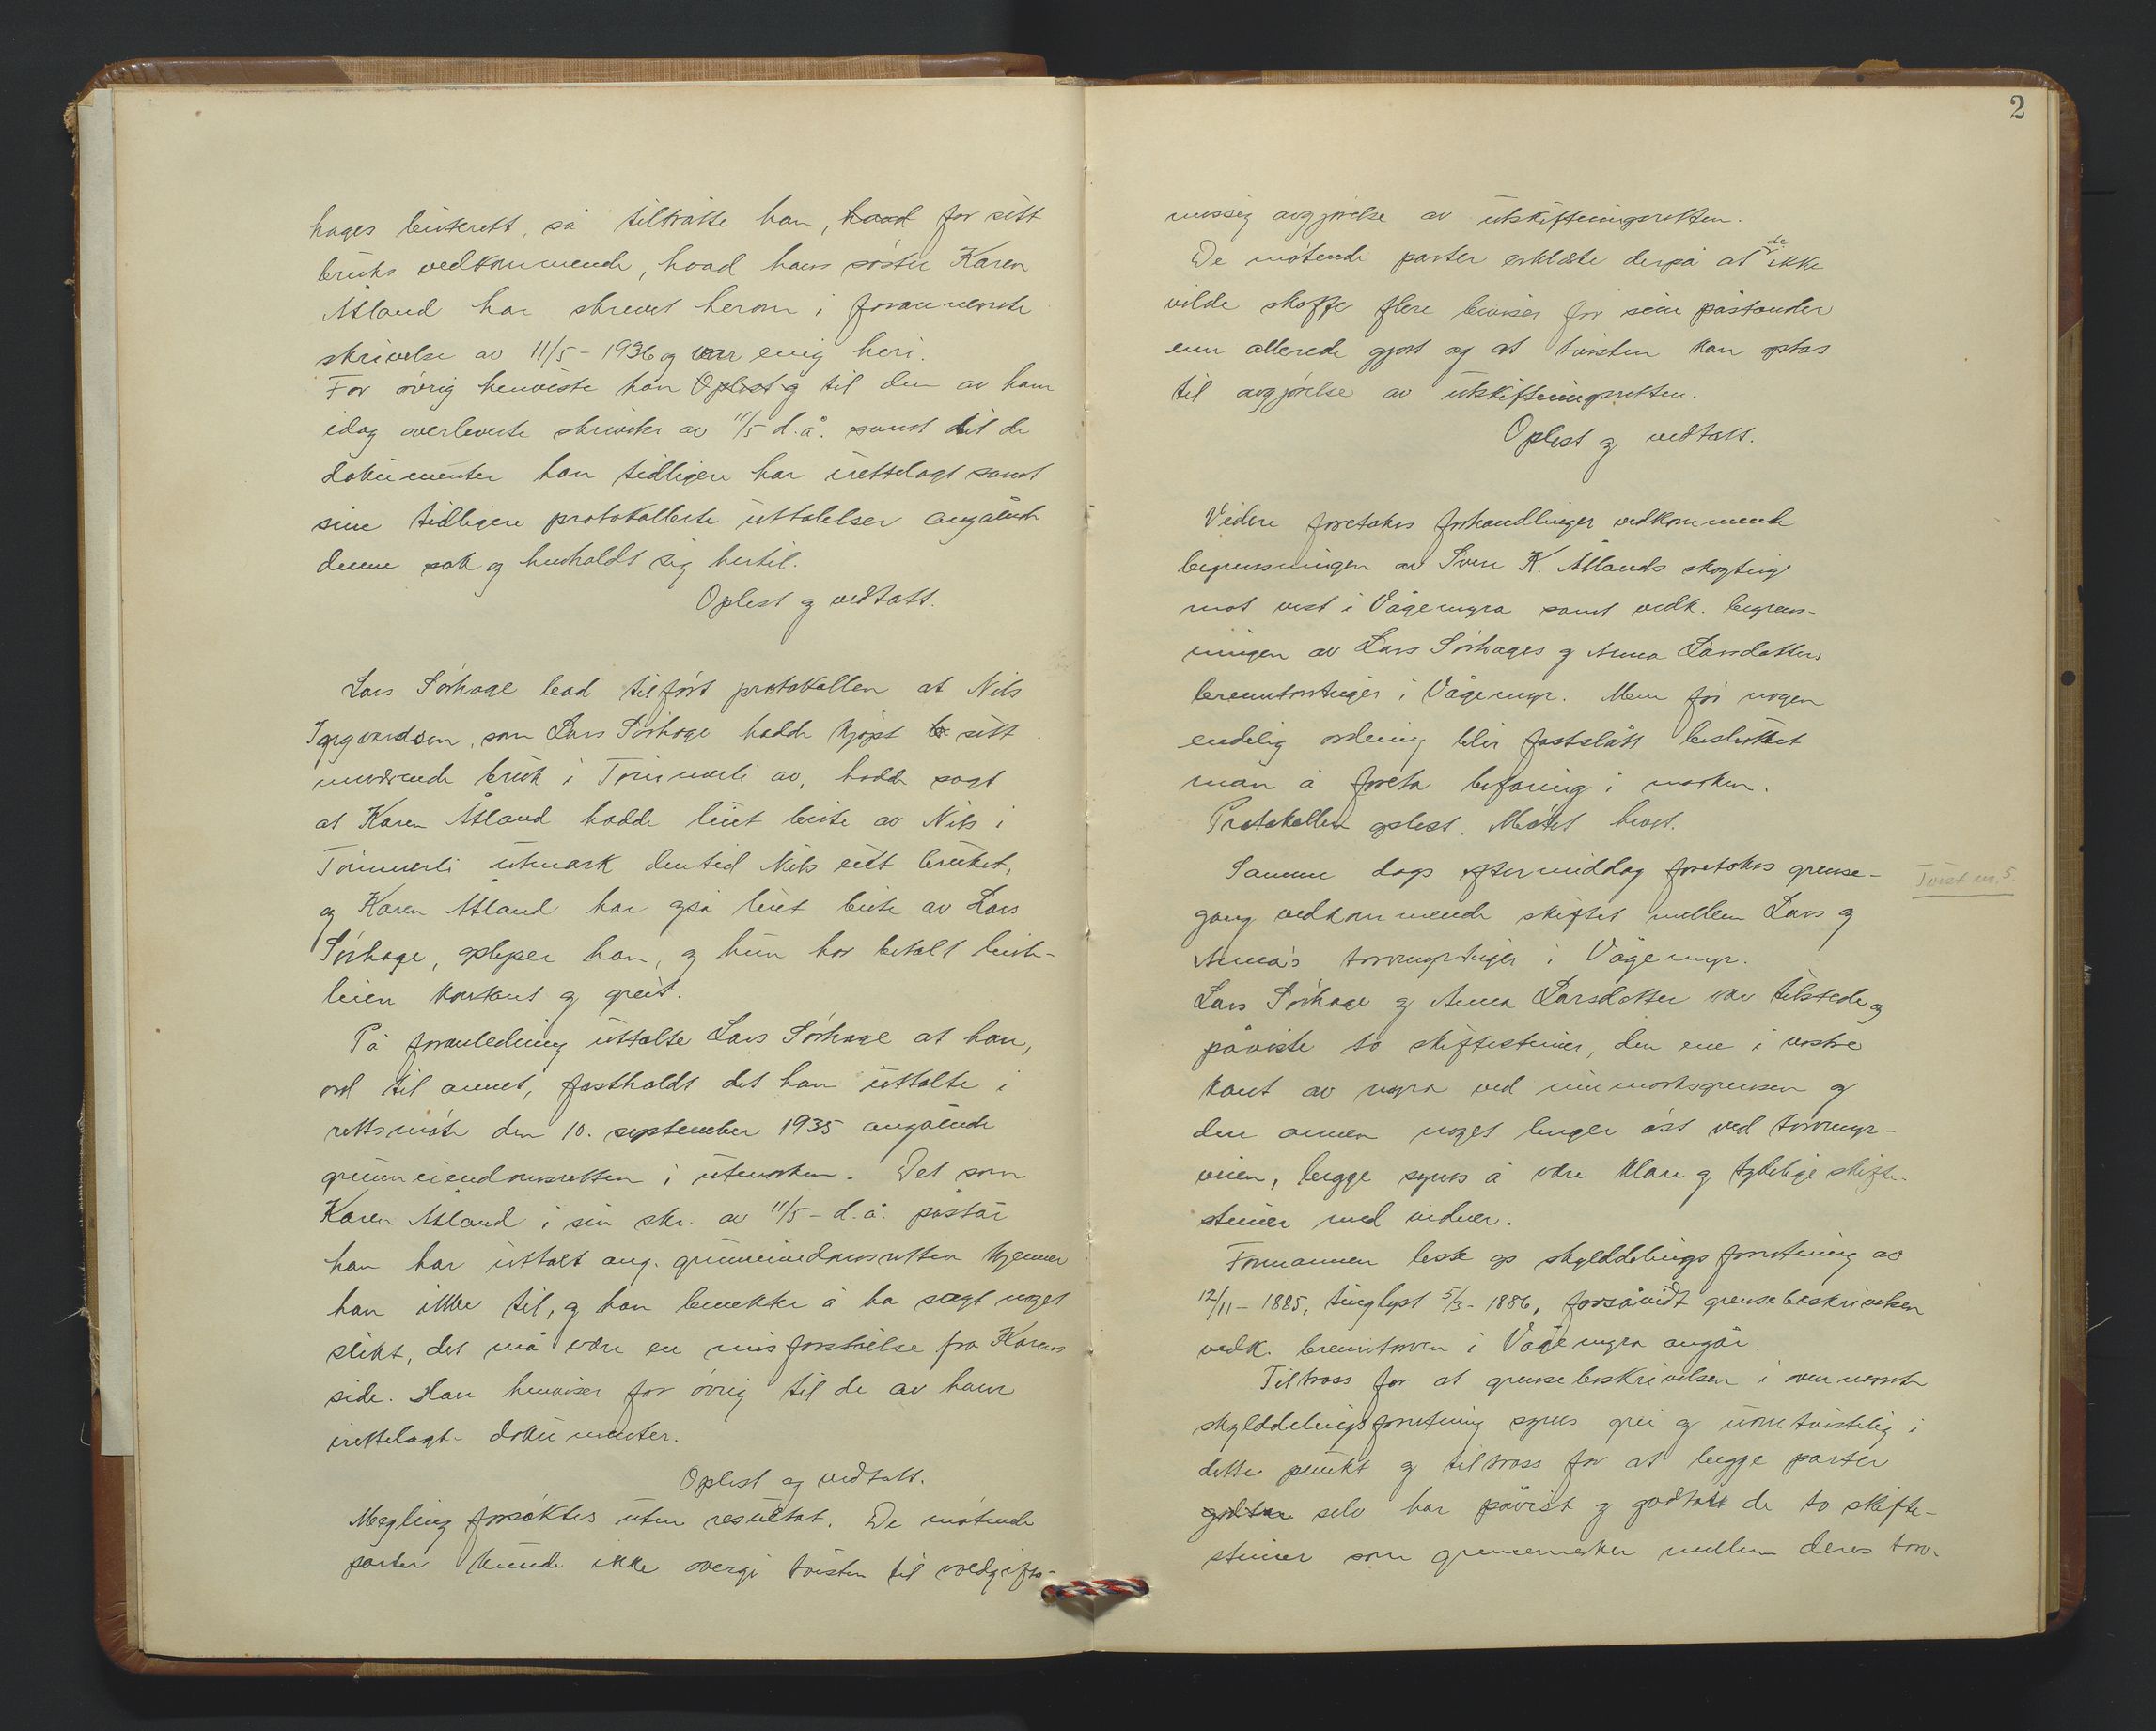 hages beiterett, så tiltrådte han, hvad for sitt
bruks vedkommende, hvad hans søster Karen
Åsland har skrevet herom i forannevnte
skrivelse av 11/5 - 1936 og var enig heri.
For øvrig henviste han Oplest og til den av ham
idag overleverte skrivelse av 11/5 d.å. samt til de
dokumenter han tidligere har irettelagt samt
sine tidligere protokollerte uttalelser angående
denne sak og henholdt sig hertil.
Oplest og vedtatt.
Lars Sørhage lead tilført protokollen at Nils
Ingvardsen, som Lars Sørhage hadde kjøpt sitt
nuværende bruk i Tømmerli av, hadde sagt
at Karen Åsland hadde leiet beite av Nils i
Tømmerli utmark den tid Nils eiet bruket,
og Karen Åsland har også leiet beite av Lars
Sørhage, oplyser han, og hun har betalt beite-
leien kontant og greit.
På foranledning uttalte Lars Sørhage at han,
ord til annet, fastholdt det han uttalte i
rettsmøte den 10. september 1935 angående
grunneiendomsretten i utmarken. Det som
Karen Åsland i sin skr. av 11/5 - d.å. påstår
han har uttalt ang. grunneiendomsretten kjenner
han ikke til, og han benekter å ha sagt noget
slikt, det må være en misforståelse fra Karens
side. Han henviser for øvrig til de av ham
irettelagte dokumenter.
Oplest og vedtatt.
Megling forsøktes uten resultat. De møtende
parter kunde ikke overgi tvisten til voldgifts-
2
messig avgjørelse av utskiftningsretten.
De møtende parter erklærte derpå at de ikke
vilde skaffe flere beviser for sine påstander
enn allerede gjort og at tvisten kan optas
til avgjørelse av utskiftningsretten.
Oplest og vedtatt.
Videre foretokes forhandlinger vedkommende
begrensningen av Sven K. Åslands skogteig
mot vest i Vågemyra samt vedk. begrens-
ningen av Lars Sørhages og Anna Larsdatters
brenntorvteiger i Vågemyr. Men før nogen
endelig ordning blir fastslått besluttet
man å foreta befaring i marken.
Protokollen oplest. Møtet hevet.
Samme dags eftermiddag foretokes grense-
Tvist nr. 5.
gang vedkommende skiftet mellem Lars og
Anna's torvmyrteiger i Vågemyr.
Lars Sørhage og Anna Larsdatter var tilstede og
påviste to skiftesteiner, den ene i vestre
kant av myra ved innmarksgrensen og
den annen noget lenger øst ved torvmyr-
veien, begge synes å være klare og tydelige skifte-
steiner med vidner.
Formannen leste op skylddelingsforretning av
12/11 - 1885, tinglyst 5/3 - 1886, forsåvidt grensebeskrivelsen
vedk. brenntorven i Vågemyra angår.
Tiltross for at grensebeskrivelsen i ovennevnte
skylddelingsforretning synes grei og uomtvistelig i
dette punkt og tiltross for at begge parter
godtar selv har påvist og godtatt de to skifte-
steiner som grensemerker mellem deres torv-